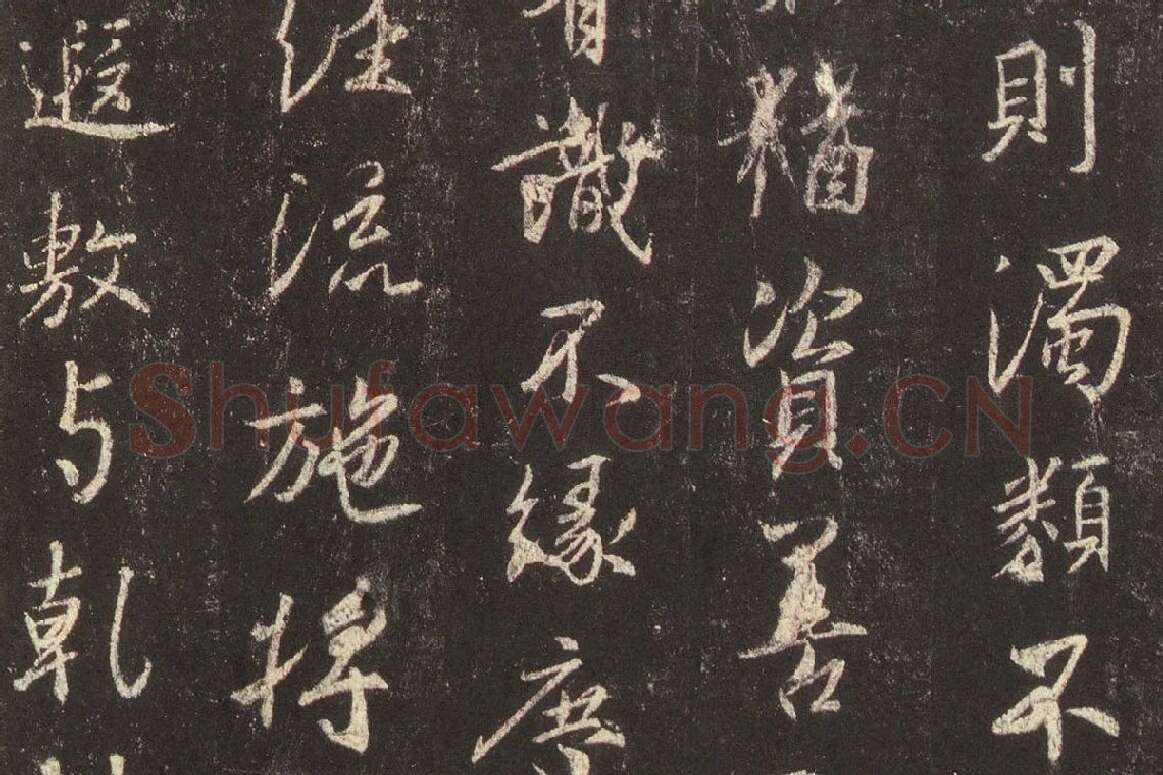 則濁類不
猶資善
有識不緣慶
經流施將
遐敷与乾
Shufawang.CN